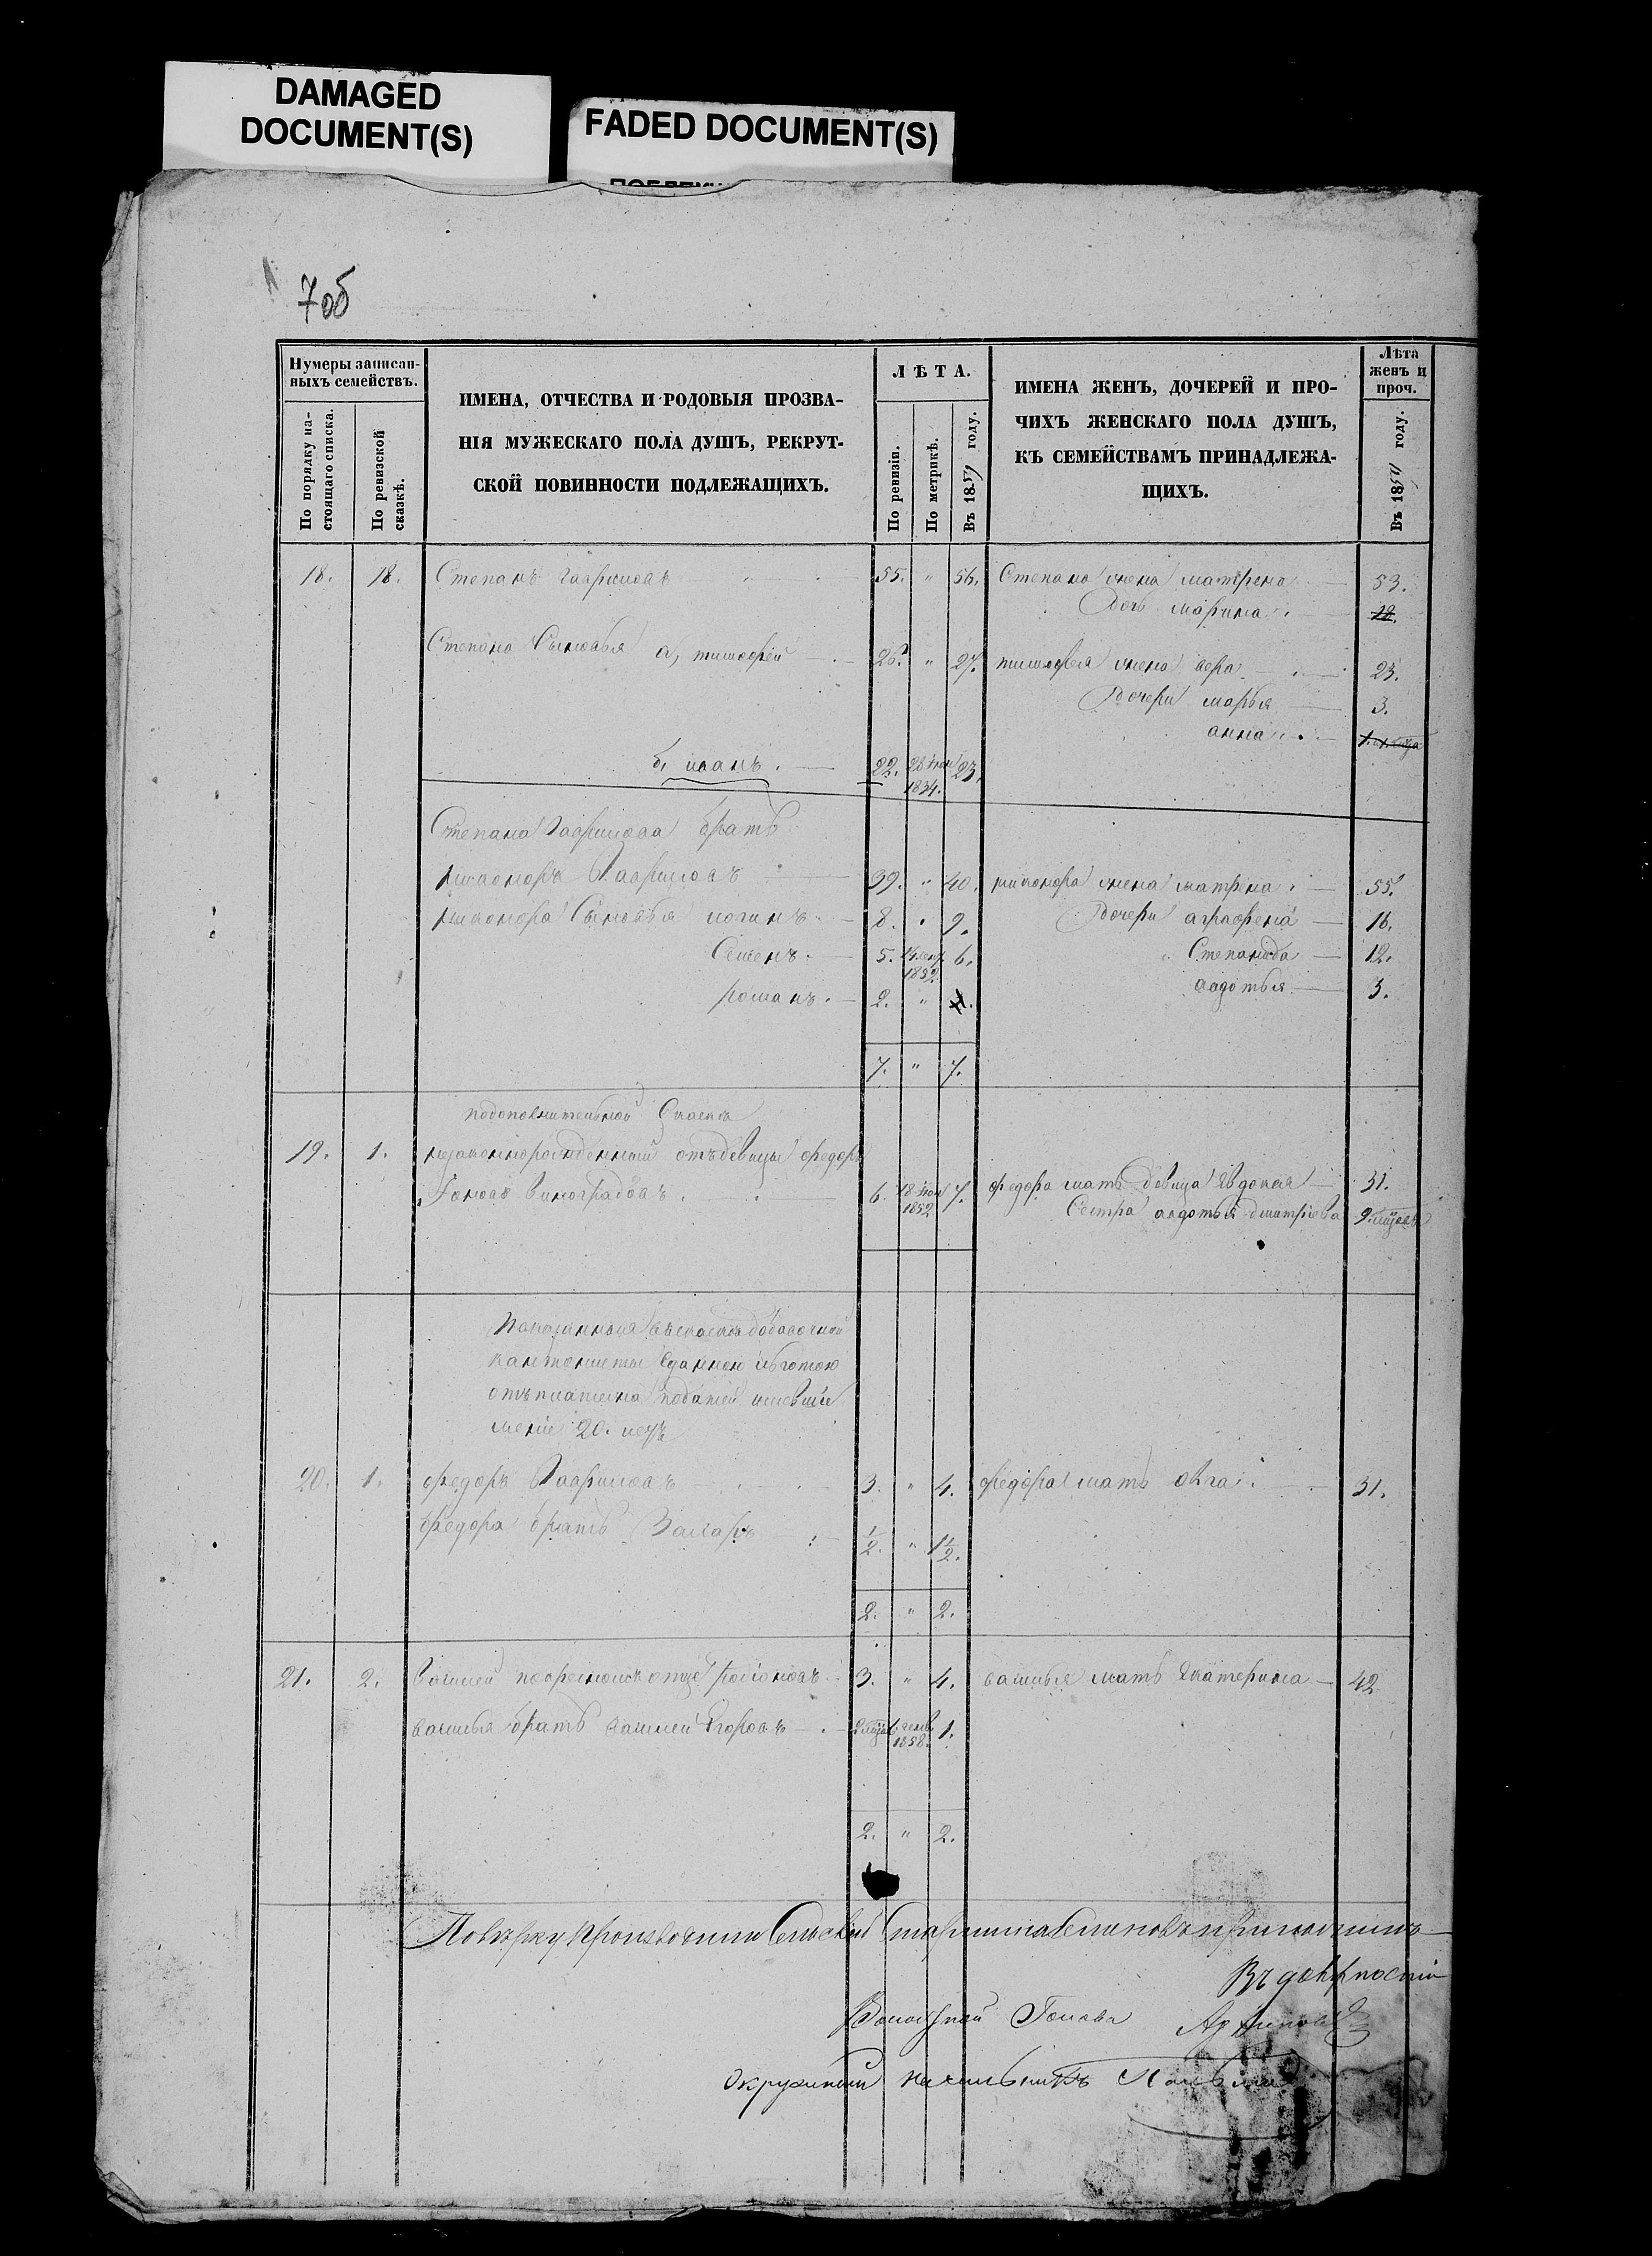 DAMAGED
DOCUMENT(S)
FADED DOCUMENT(S)
7 об
Нумеры записан-
ныхъ семействъ.
По порядку на-
стоящаго списка.
По ревизской
сказкѣ.
ИМЕНА, ОТЧЕСТВА И РОДОВЫЯ ПРОЗВА-
НІЯ МУЖЕСКАГО ПОЛА ДУШЪ, РЕКРУТ-
СКОЙ ПОВИННОСТИ ПОДЛЕЖАЩИХЪ.
ЛѢТА.
По ревизіи.
По метрикѣ.
Въ 1859 году.
ИМЕНА ЖЕНЪ, ДОЧЕРЕЙ И ПРО-
ЧИХЪ ЖЕНСКАГО ПОЛА ДУШЪ,
КЪ СЕМЕЙСТВАМЪ ПРИНАДЛЕЖА-
ЩИХЪ.
Лѣта
женъ и
проч.
Въ 1859 году.
18. 18. Степанъ гавриловъ 55. " 56. Степана жена матрена 53.
дочь марина 18.
Степана Сыновья а, тимофей 26. " 27. тимофея жена вера 23.
дочери марья 3.
анна
б, иванъ. 22. 28 1834. 23.
Степана Гаврилова братъ
никоноръ Гавриловъ 39. " 40. никонора жена матрена 55.
никонора Сыновья логинъ 8. " 9. дочери аграфена 16.
Семенъ. 5. 1852. 6. Степанида 12.
романъ. 2. " авдотья 3.
7. " 7.
подополнительной Сказкѣ
19. 1. незаконнорожденный отъ девицы федоръ
виноградовъ. 6. 18 1852 7. федора мать девица Явдокея 31.
Сестра авдотья дмитріева 9
кантонисты
отъ платежа податей имевшіе
менѣе 20. летъ
20. 1. федоръ Гавриловъ 3. " 4. федора мать 31.
федора братъ Захаръ 1/2. " 1 1/2.
2. " 2.
21. 2. василей покрестномъ отцѣ 3. " 4. василья мать Екатерина 42.
василья братъ василей Егоровъ 1858. 1.
2. " 2.
Поверку производили Сельскій старшина
Въ
Волостной Голова
Окружный начальникъ